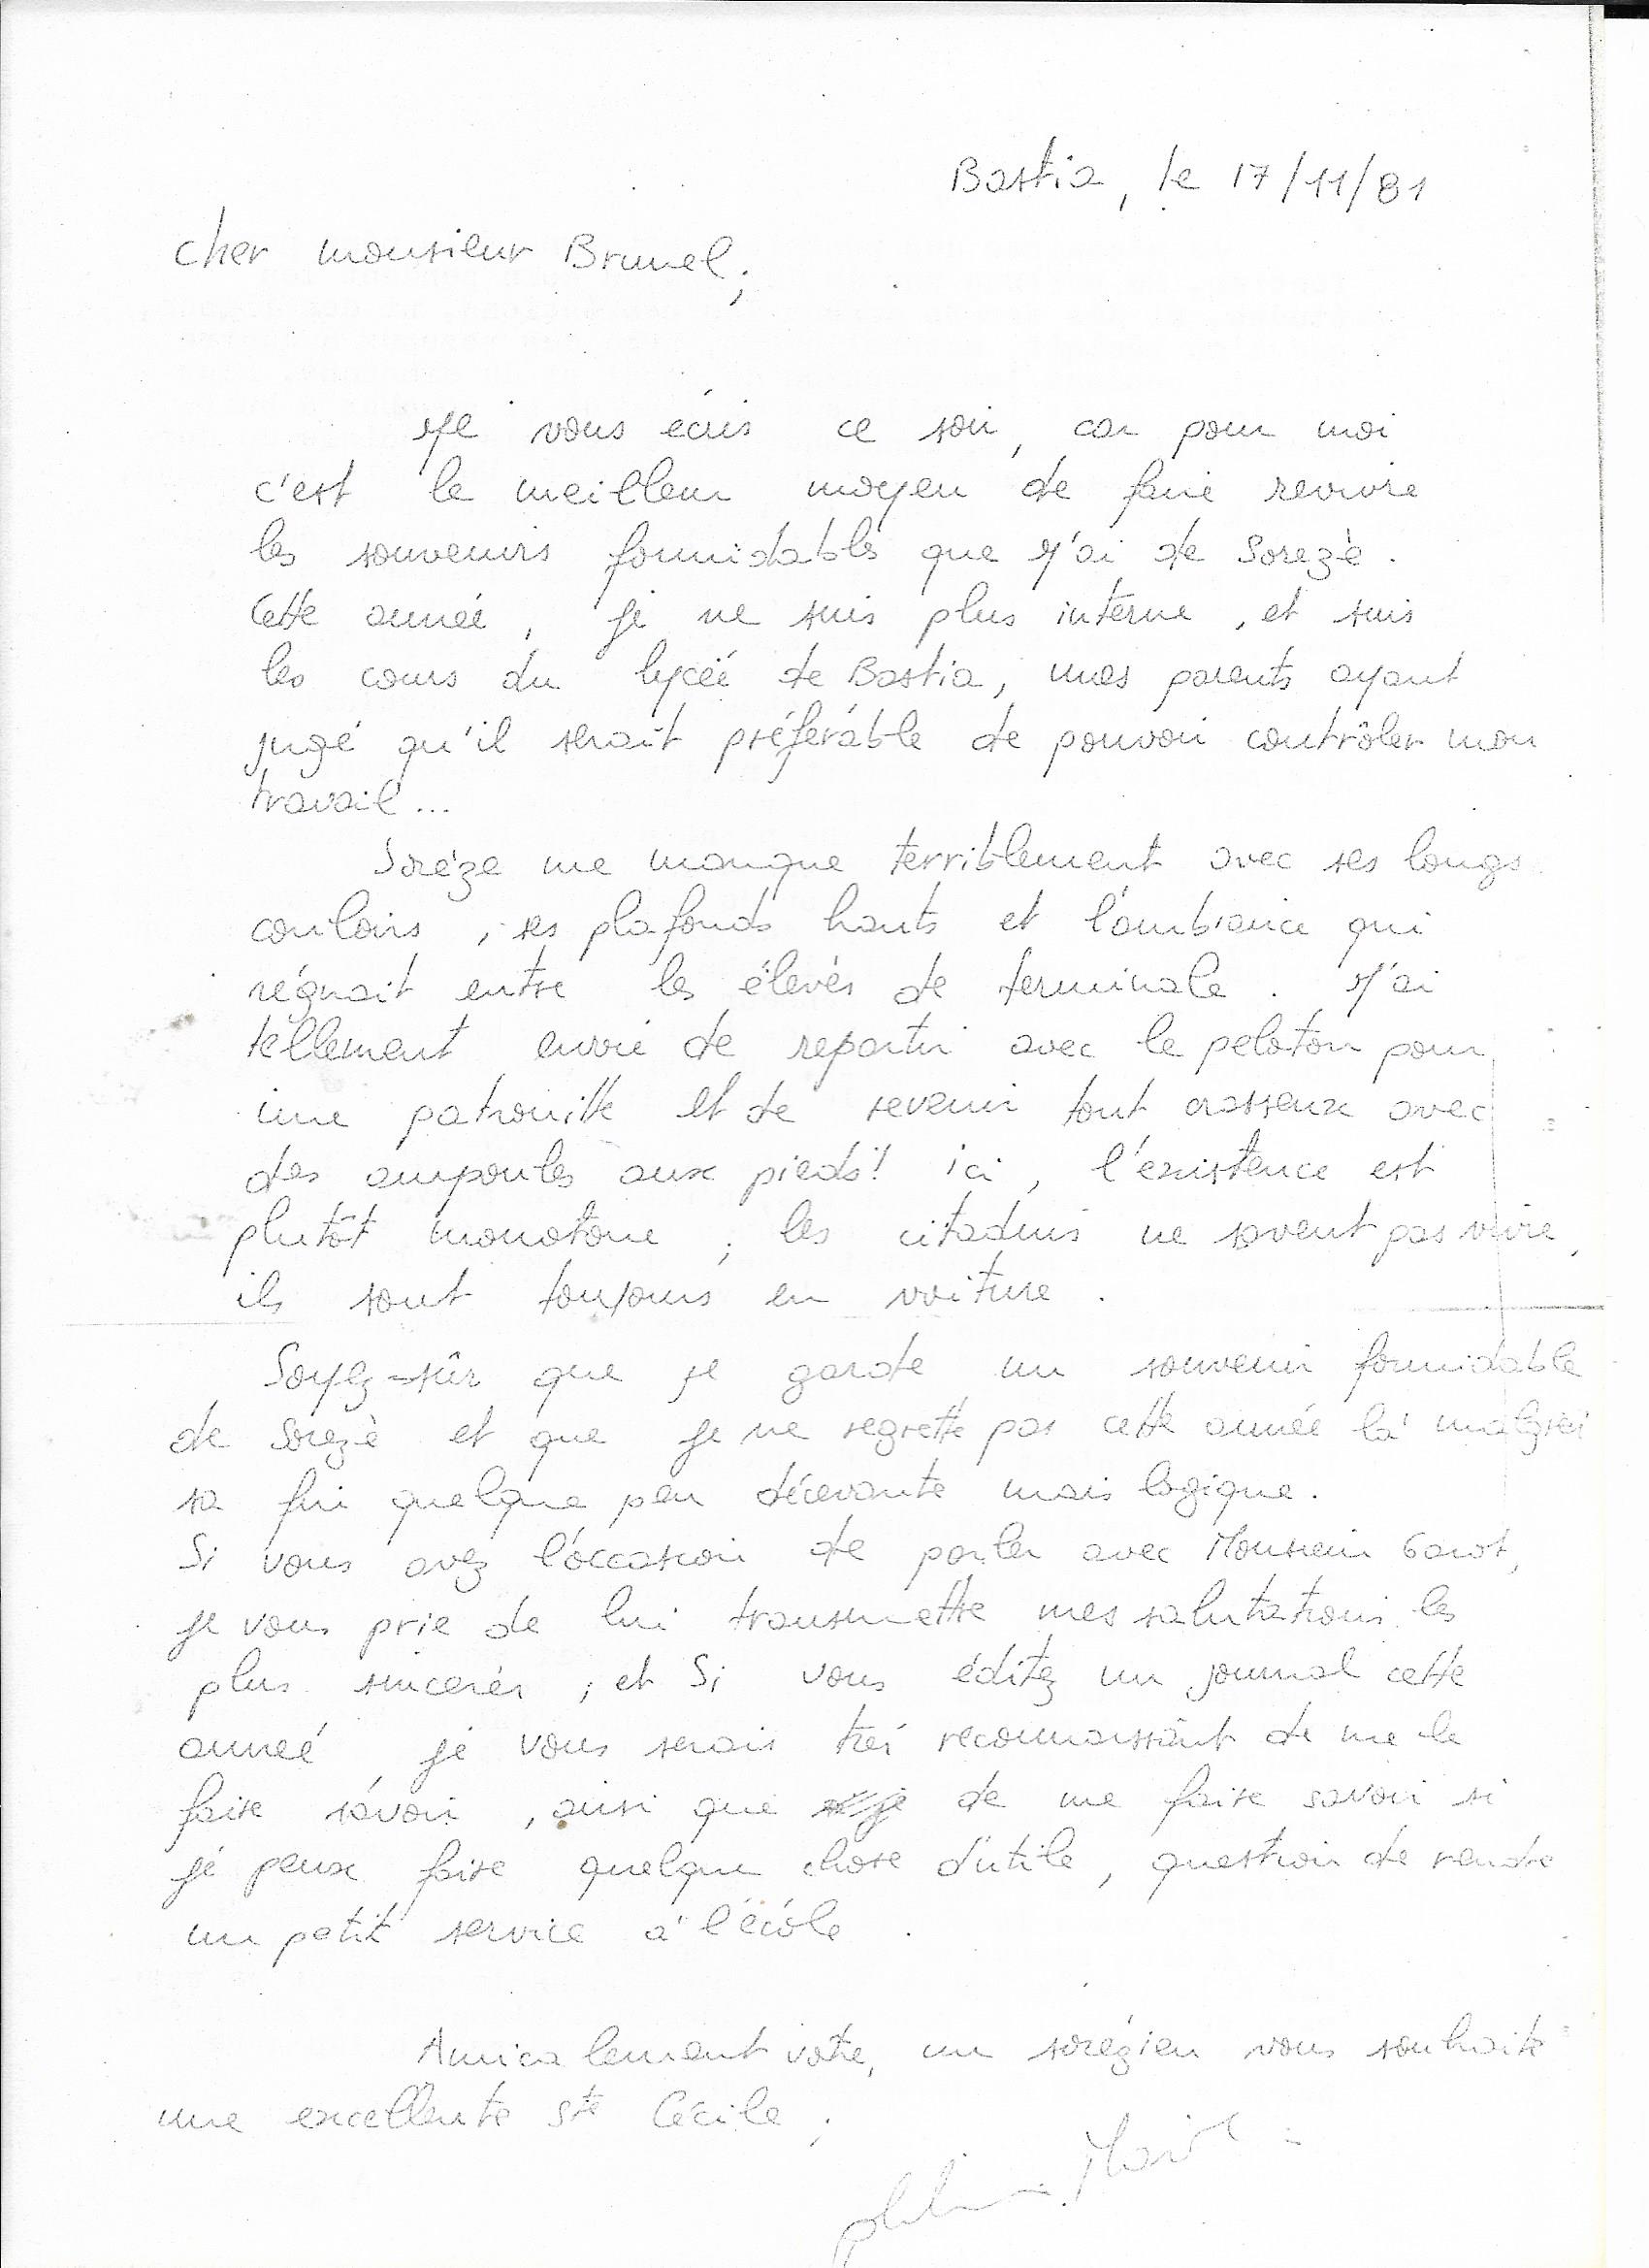 Bastia, le 17/11/81
Cher monsieur Brunel,
Je vous écris ce soir, car pour moi
c'est le meilleur moyen de faire revivre
les souvenirs formidables que j'ai de Sorèze.
Cette année, je ne suis plus interne, et suis
les cours du lycée de Bastia, mes parents ayant
jugé qu'il serait préférable de pouvoir contrôler mon
travail...
Sorèze me manque terriblement avec ses longs
couloirs, ses plafonds hauts et l'ambiance qui
régnait entre les élèves de terminale. J'ai
tellement envie de repartir avec le peloton pour
une patrouille et de revenir tout crasseux avec
des ampoules aux pieds! ici, l'existence est
plutôt monotone, les citadins ne savent pas vivre,
ils sont toujours en voiture.
Soyez-sûr que je garde un souvenir formidable
de Sorèze et que je ne regrette pas cette année là malgré
sa fin quelque peu décevante mais logique.
Si vous avez l'occasion de parler avec Monsieur
je vous prie de lui transmettre mes salutations les
plus sincères, et Si vous éditez un journal cette
année, je vous serais très reconnaissant de me le
faire savoir, ainsi que de me faire savoir si
je peux faire quelque chose d'utile, question de rendre
un petit service à l'école.
Amicalement votre, un sorézien vous souhaite
une excellente Ste Cécile,